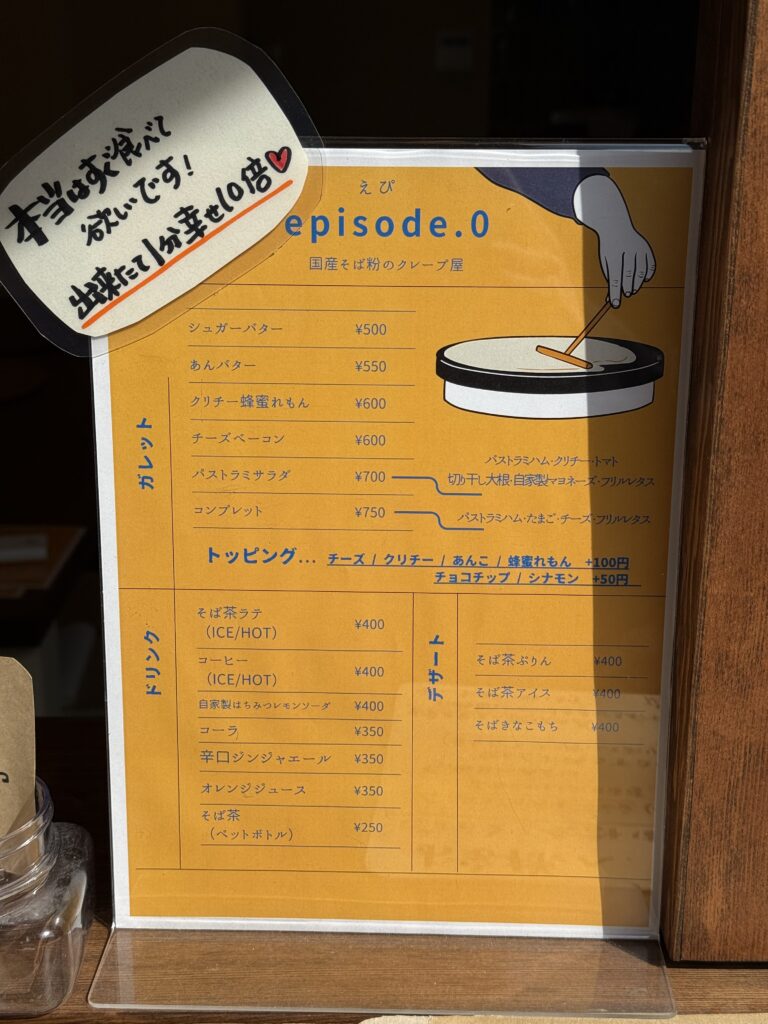 本当はすぐ食べて
欲いです!
出来たて1分幸せ10倍♥
えぴ
episode.0
国産そば粉のクレープ屋
ガレット
シュガーバター ¥500
あんバター ¥550
クリチー蜂蜜れもん ¥600
チーズベーコン ¥600
パストラミサラダ ¥700
パストラミハム・クリチー・トマト
切り干し大根・自家製マヨネーズ・フリルレタス
コンプレット ¥750
パストラミハム・たまご・チーズ・フリルレタス
トッピング... チーズ / クリチー / あんこ / 蜂蜜れもん +100円
チョコチップ / シナモン +50円
ドリンク
そば茶ラテ
(ICE/HOT) ¥400
コーヒー
(ICE/HOT) ¥400
自家製はちみつレモンソーダ ¥400
コーラ ¥350
辛口ジンジャエール ¥350
オレンジジュース ¥350
そば茶
(ペットボトル) ¥250
デザート
そば茶ぷりん ¥400
そば茶アイス ¥400
そばきなこもち ¥400